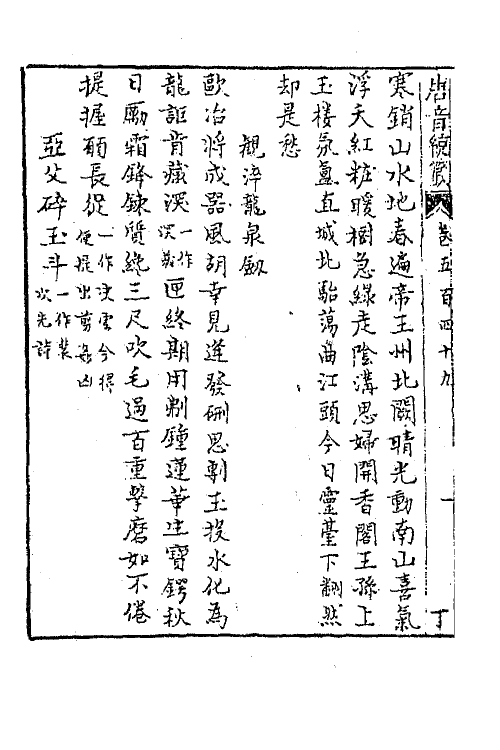 唐音統籤 卷五百四十九 一 丁
寒銷山水地春遍帝王州北闕晴光動南山喜氣
浮夭紅粧暖樹急綠走陰溝思婦開香閣王孫上
玉樓氛氳直城北駘蕩曲江頭今日靈臺下翻然
却是愁
觀淬龍泉劍
歐冶將成器風胡幸見逢發硎思剸玉投水化為
龍詎肯藏深一作深藏匣終期用剸鐘蓮華生寶鍔秋
日勵霜鋒鍊質纔三尺吹毛過百重擊磨如不倦
提握願長從一作決雲今得便提出剪奸凶
亞父碎玉斗一作裴次元詩